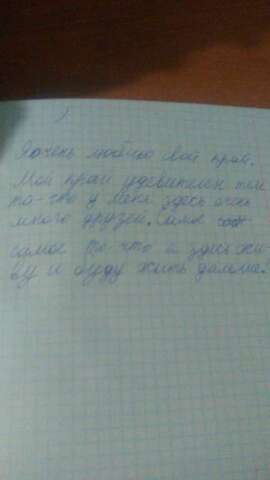 Я очень люблю свой край.
Мой край удевителен тем
то-что у меня здесь очень
много друзей. Само
самое то-что я здесь жи
ву и буду жить дальше.